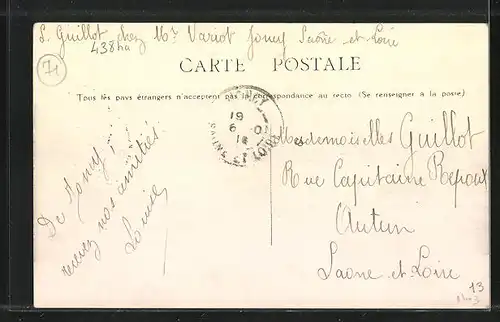 L. Guillot chez Mr Variot Joncy Saône-et-Loire
438ha
71
CARTE POSTALE
Tous les pays étrangers n'acceptent pas la correspondance au recto (Se renseigner à la poste)
19
6
SAONE ET LOIRE
De Joncy,
recevez nos amitiés.
Louise
Mesdemoiselles Guillot
Rue Capitaine Repoux
Autun
Saone-et-Loire
13